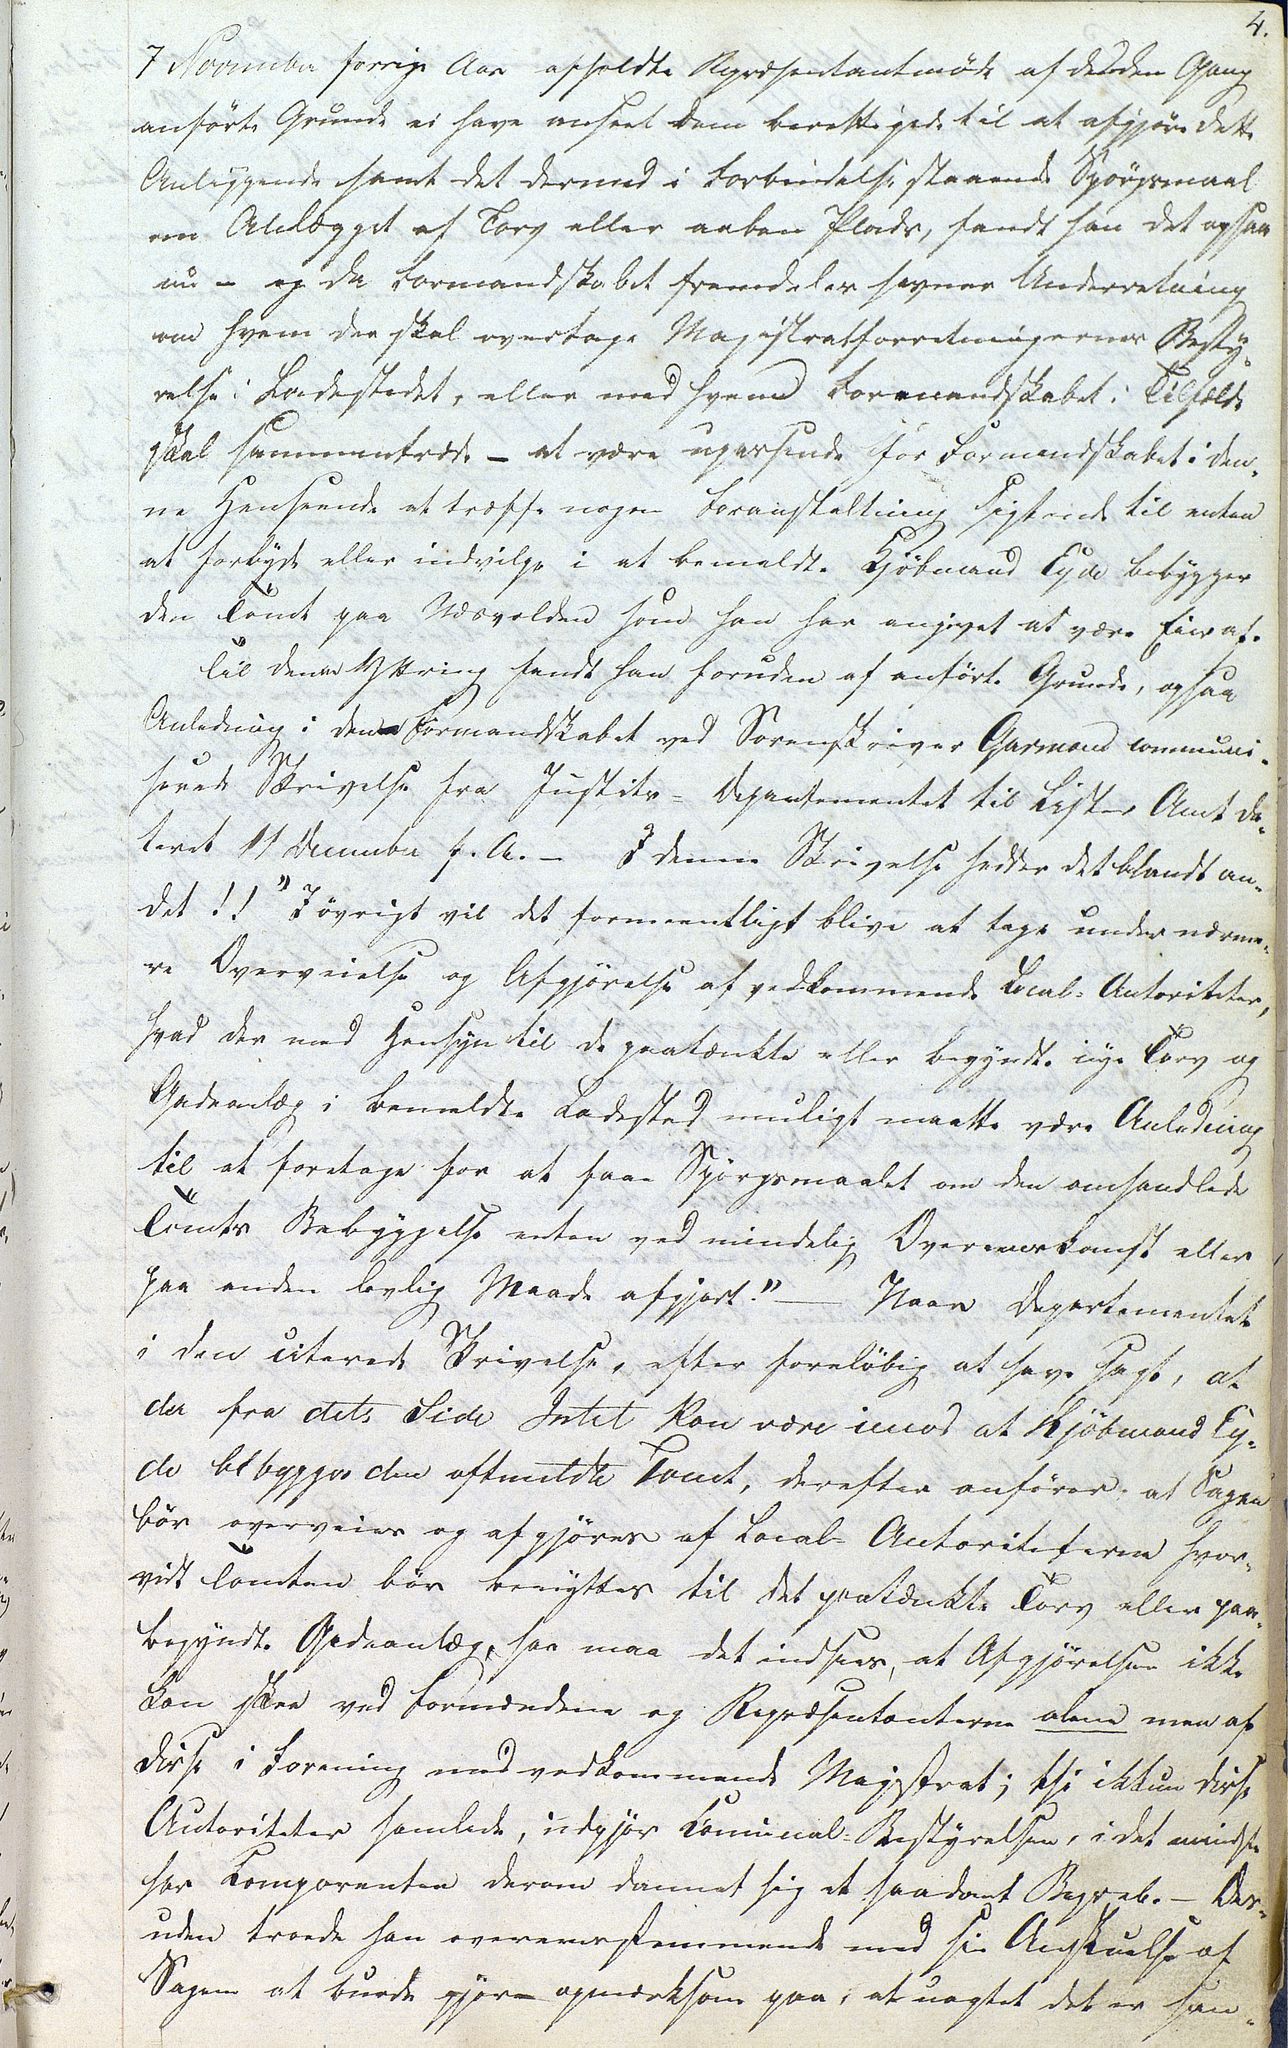 4.
7 November forrige Aar afholdte Repræsentantmøde af de den Gang
anførte Grunde ei have anseet dem berettigede til at afgjøre dette
Anliggende samt det dermed i Forbindelse staaende Spørgsmaal
om Anlægget af Torv eller aaben Plads, fandt han det ogsaa
nu – og da Formandskabet fremdeles savner Underretning
om hvem der skal overtage Magistratforretningernes Besty-
relse i Ladestedet, eller med hvem Formandskabet i Tilfælde
skal sammentræde – at være upassende for Formandskabet i den-
ne Henseende at træffe nogen Foranstaltning sigtende til enten
at forbyde eller indvilge i at bemeldte Kjøbmand Eyde bebygger
den Tomt paa Nesvolden som han har angivet at være Eier af.
Til denne Yttring fandt han foruden af anførte Grunde, ogsaa
Anledning i den Formandskabet ved Sorenskriver Garmand communi-
cerede Skrivelse fra Justits-Departementet til Lister Amt da-
teret 11 December f. A. – I denne Skrivelse hedder det blandt an-
det !! "I øvrigt vil det formeentligt blive at tage under nærme-
re Overveielse og Afgjørelse af vedkommende Local-Autoriteter,
hvad der med Hensyn til de paatænkte eller begyndte nye Torv og
Gadeanlæg i bemeldte Ladested muligt maatte være Anledning
til at foretage for at faae Spørgsmaalet om den omhandlede
Tomts Bebyggelse enten ved mindelig Overenskomst eller
paa anden lovlig Maade afgjort." — Naar Departementet
i den citerede Skrivelse, efter foreløbig at have sagt, at
der fra dets Side Intet kan være imod at Kjøbmand Ey-
de bebygger den oftmeldte Tomt, derefter anfører: at Sagen
bør overveies og afgjøres af Local-Autoriteterne hvor-
vidt Tomten bør benyttes til det paatænkte Torv eller paa-
begyndte Gadeanlæg, saa maa det indsees, at Afgjørelsen ikke
kan skee ved Formændene og Repræsentanterne alene men af
disse i Forening med vedkommende Magistrat; thi ikkun disse
Autoriteter samlede, udgjør Communal-Bestyrelsen, i det mindste
har Comparenten derom dannet sig et saadant Begreb. – Des-
uden troede han overensstemmende med sin Anskuelse af
Sagen at burde gjøre opmærksom paa, at uagtet det er han-